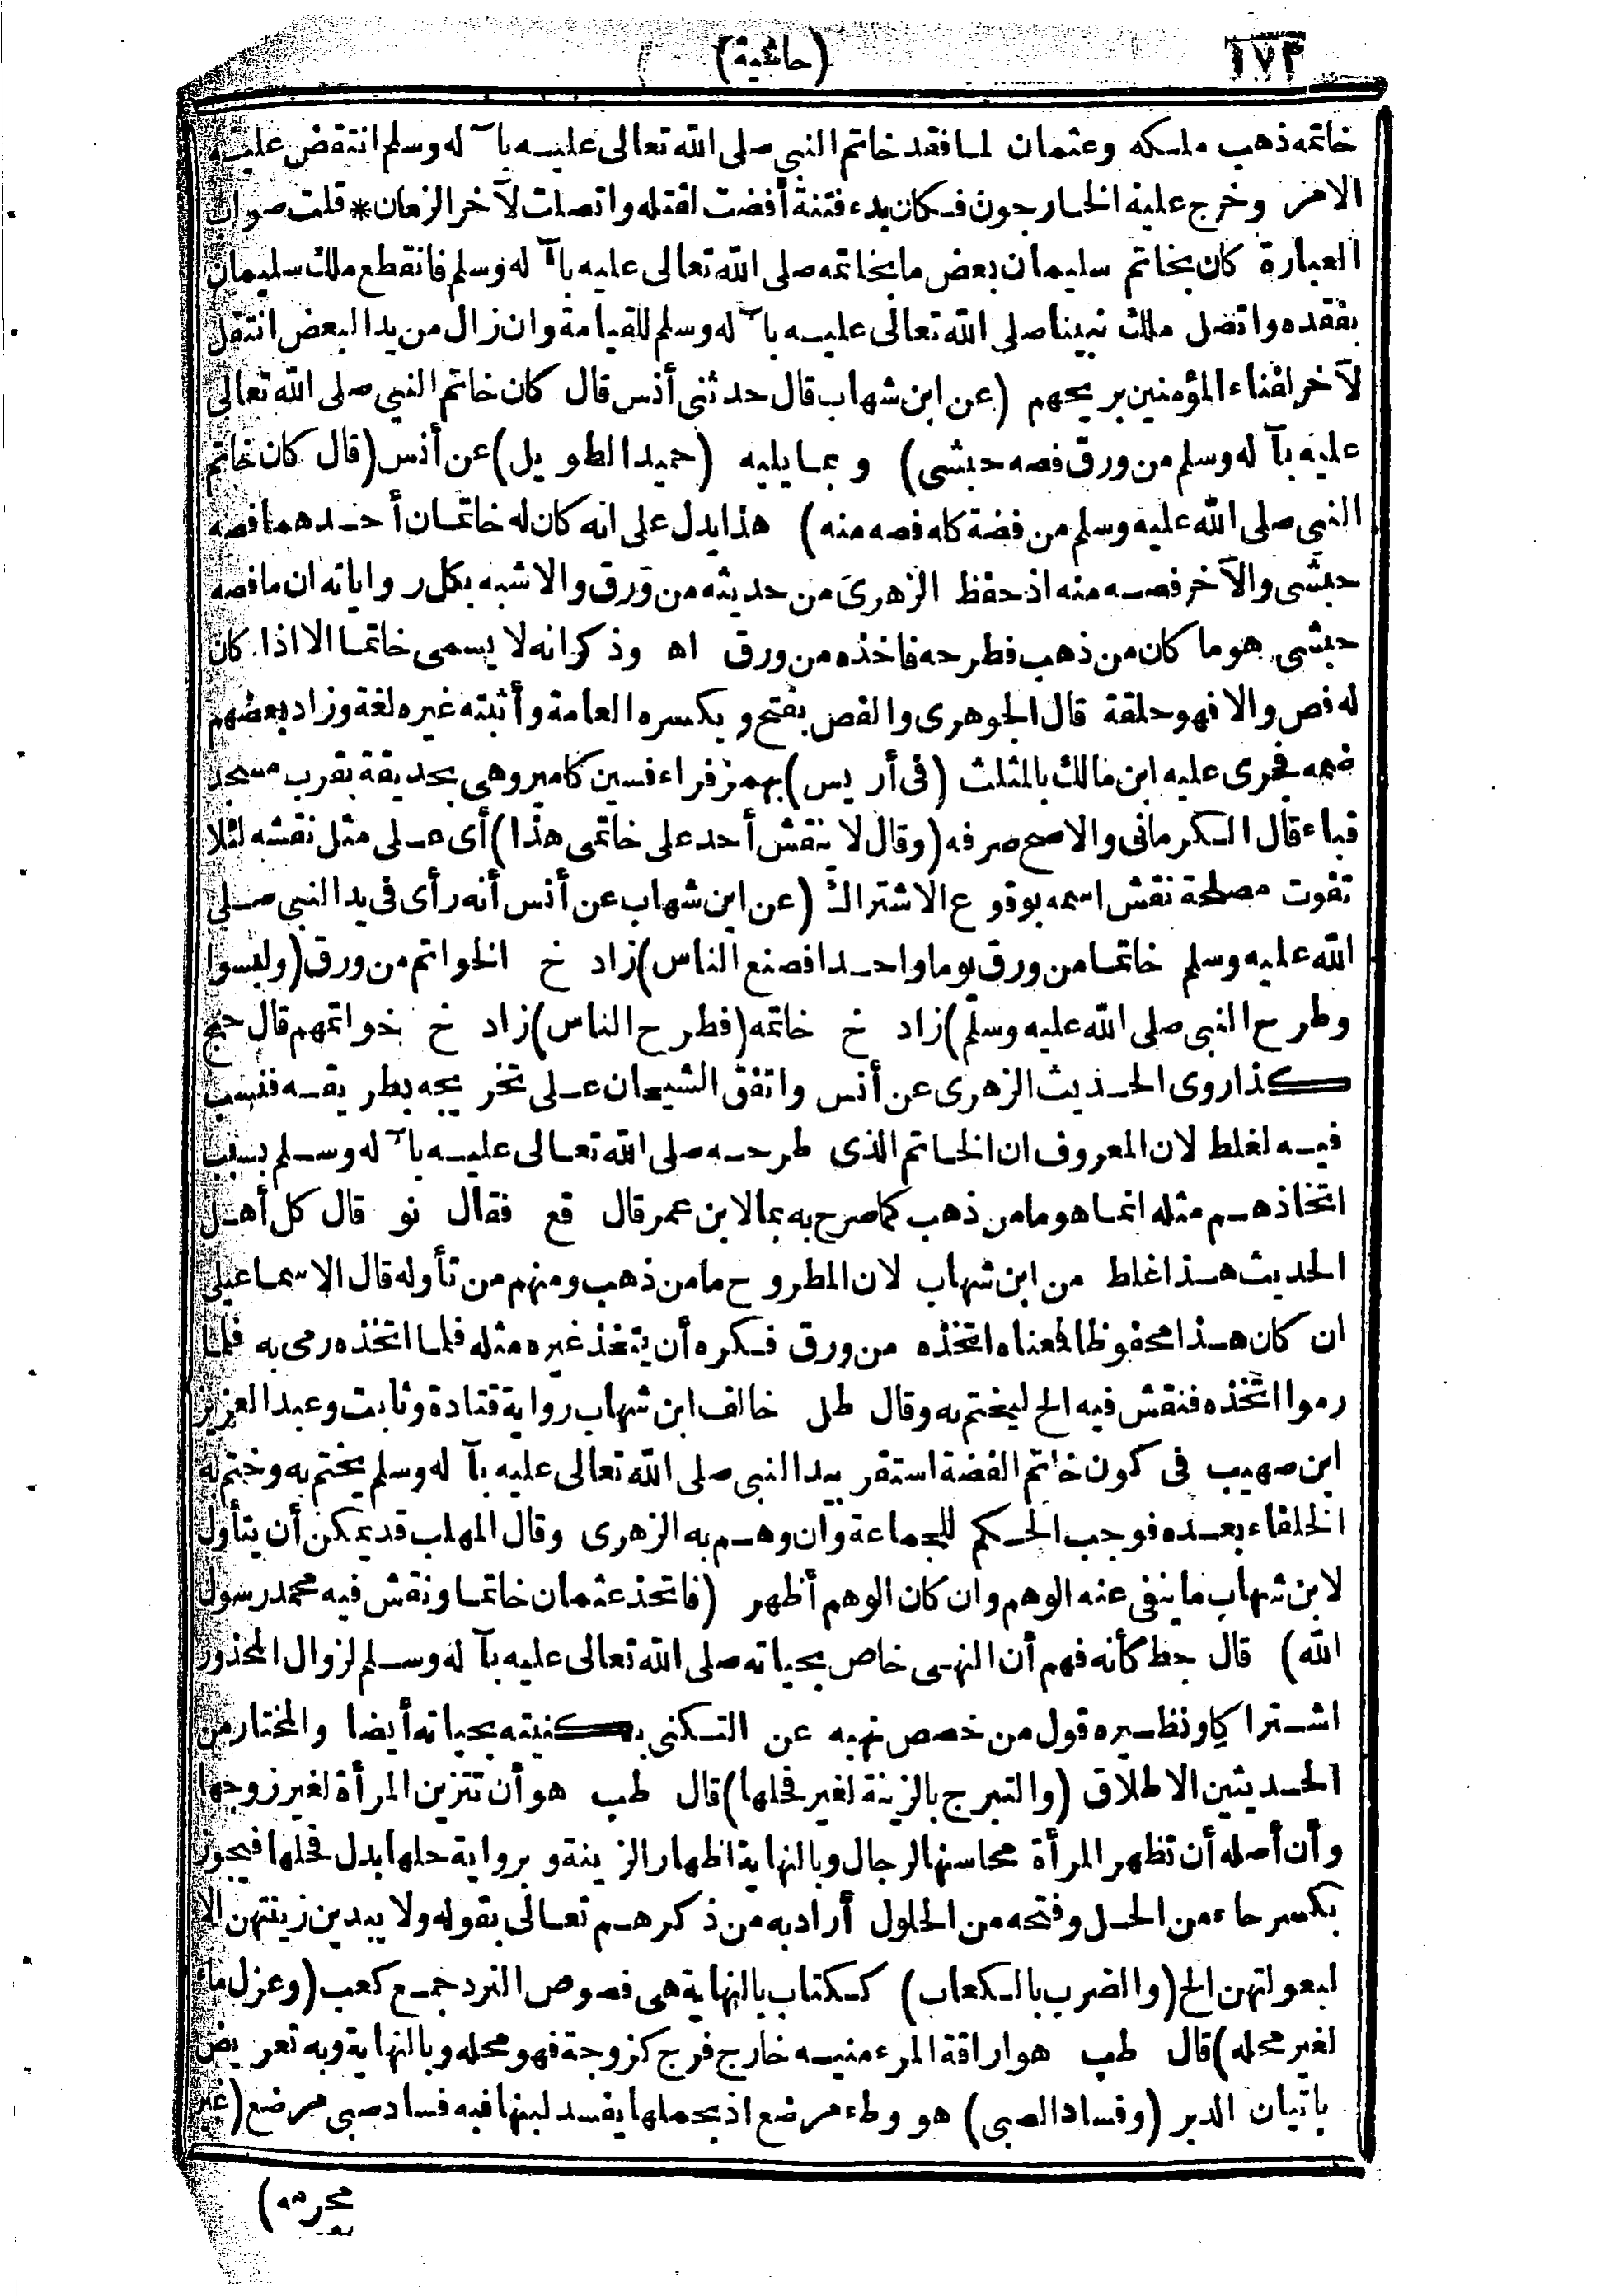 ١٧٣
(حاشية)
خاتمه ذهب ملكه وعثمان لما فقد خاتم النبي صلى الله تعالى عليه بآ له وسلم انتقض عليه
الامر وخرج عليه الخارجون فكان بدء فتنة أفضت لقتله واتصلت لآخر الزمان * قلت صواب
العبارة كان بخاتم سليمان بعض ما بخاتمه صلى الله تعالى عليه بآ له وسلم فانقطع ملك سليمان
بفقده واتصل ملك نبينا صلى الله تعالى عليه بآ له وسلم للقيامة وان زال من يد البعض انتقل
لآخر لفناء المؤمنين بريحهم (عن ابن شهاب قال حدثنى أنس قال كان خاتم النبي صلى الله تعالى
عليه بآ له وسلم من ورق فصه حبشى) وبمايليه (حميد الطويل) عن أنس (قال كان خاتم
النبي صلى الله عليه وسلم من فضة كله فصه منه) هذا يدل على انه كان له خاتمان أحدهما فصه
حبشى والآخر فصه منه اذ حفظ الزهرى من حديثه من ورق والاشبه بكل رواياته ان ما فصه
حبشى هو ما كان من ذهب فطرحه فاخذه من ورق اه وذكر انه لا يسمى خاتما الا اذا كان
له فص والا فهو حلقة قال الجوهرى والفص بفتح ويكسره العامة وأثبته غيره لغة وزاد بعضهم
ضمه فجرى عليه ابن مالك بالمثلث (فى أريس) بهمز فراء فسين كامير وهى بحديقة بقرب مسجد
قباء قال الكرمانى والاصح صرفه (وقال لا ينقش أحد على خاتمى هذا) أى على مثل نقشه لئلا
تفوت مصلحة نقش اسمه بوقوع الاشتراك (عن ابن شهاب عن أنس أنه رأى فى يد النبي صلى
الله عليه وسلم خاتما من ورق يوما واحدا فصنع الناس) زاد خ الخواتم من ورق (ولبسوا
وطرح النبي صلى الله عليه وسلم) زاد خ خاتمه (فطرح الناس) زاد خ خواتمهم قال حج
كذا روى الحديث الزهرى عن أنس واتفق الشيخان على تخريجه بطريقه فنسب
فيه لغلط لان المعروف ان الخاتم الذى طرحه صلى الله تعالى عليه بآ له وسلم بسبب
اتخاذهم مثله انما هو ما من ذهب كما صرح به بمالابن عمر قال قع فقال نو قال كل أهل
الحديث هذا غلط من ابن شهاب لان المطروح ما من ذهب ومنهم من تأوله قال الاسماعيلى
ان كان هذا محفوظا فمعناه اتخذه من ورق فكره أن يتخذ غيره مثله فلما اتخذه رمى به فلما
رموا اتخذه فنقش فيه الخ ليختم به وقال طل خالف ابن شهاب رواية قتادة وثابت وعبد العزيز
ابن صهيب فى كون خاتم الفضة استقر بيد النبي صلى الله تعالى عليه بآ له وسلم يختم به وختم به
الخلفاء بعده فوجب الحكم للجماعة وان وهم به الزهرى وقال المهلب قد يمكن أن يتأول
لابن شهاب ما ينفى عنه الوهم وان كان الوهم أظهر (فاتخذ عثمان خاتما ونقش فيه محمد رسول
الله) قال جط كأنه فهم أن النهى خاص بحياته صلى الله تعالى عليه بآ له وسلم لزوال المحذور
اشتراكا ونظيره قول من خصص نهيه عن التكنى بكنيته بحياته أيضا والمختار من
الحديثين الاطلاق (والتبرج بالزينة لغير محلها) قال طب هو أن تتزين المرأة لغير زوجها
وأن أصله أن تظهر المرأة محاسنها لرجال وبالنهاية اظهار الزينة وبرواية حلها بدل محلها فيجوز
بكسر حاء من الحل وفتحه من الحلول أراد به من ذكرهم تعالى بقوله ولا يبدين زينتهن الا
لبعولتهن الخ (والضرب بالكعاب) ككتاب بالنهاية هى فصوص النرد جمع كعب (وعزل ماء
لغير محله) قال طب هو اراقة المرء منيه خارج فرج كزوجة فهو محله وبالنهاية وبه تعريض
باتيان الدبر (وفساد الصبى) هو وطء مرضع اذ بحملها يفسد لبنها فبه فساد صبى مرضع (غير
محرمه)